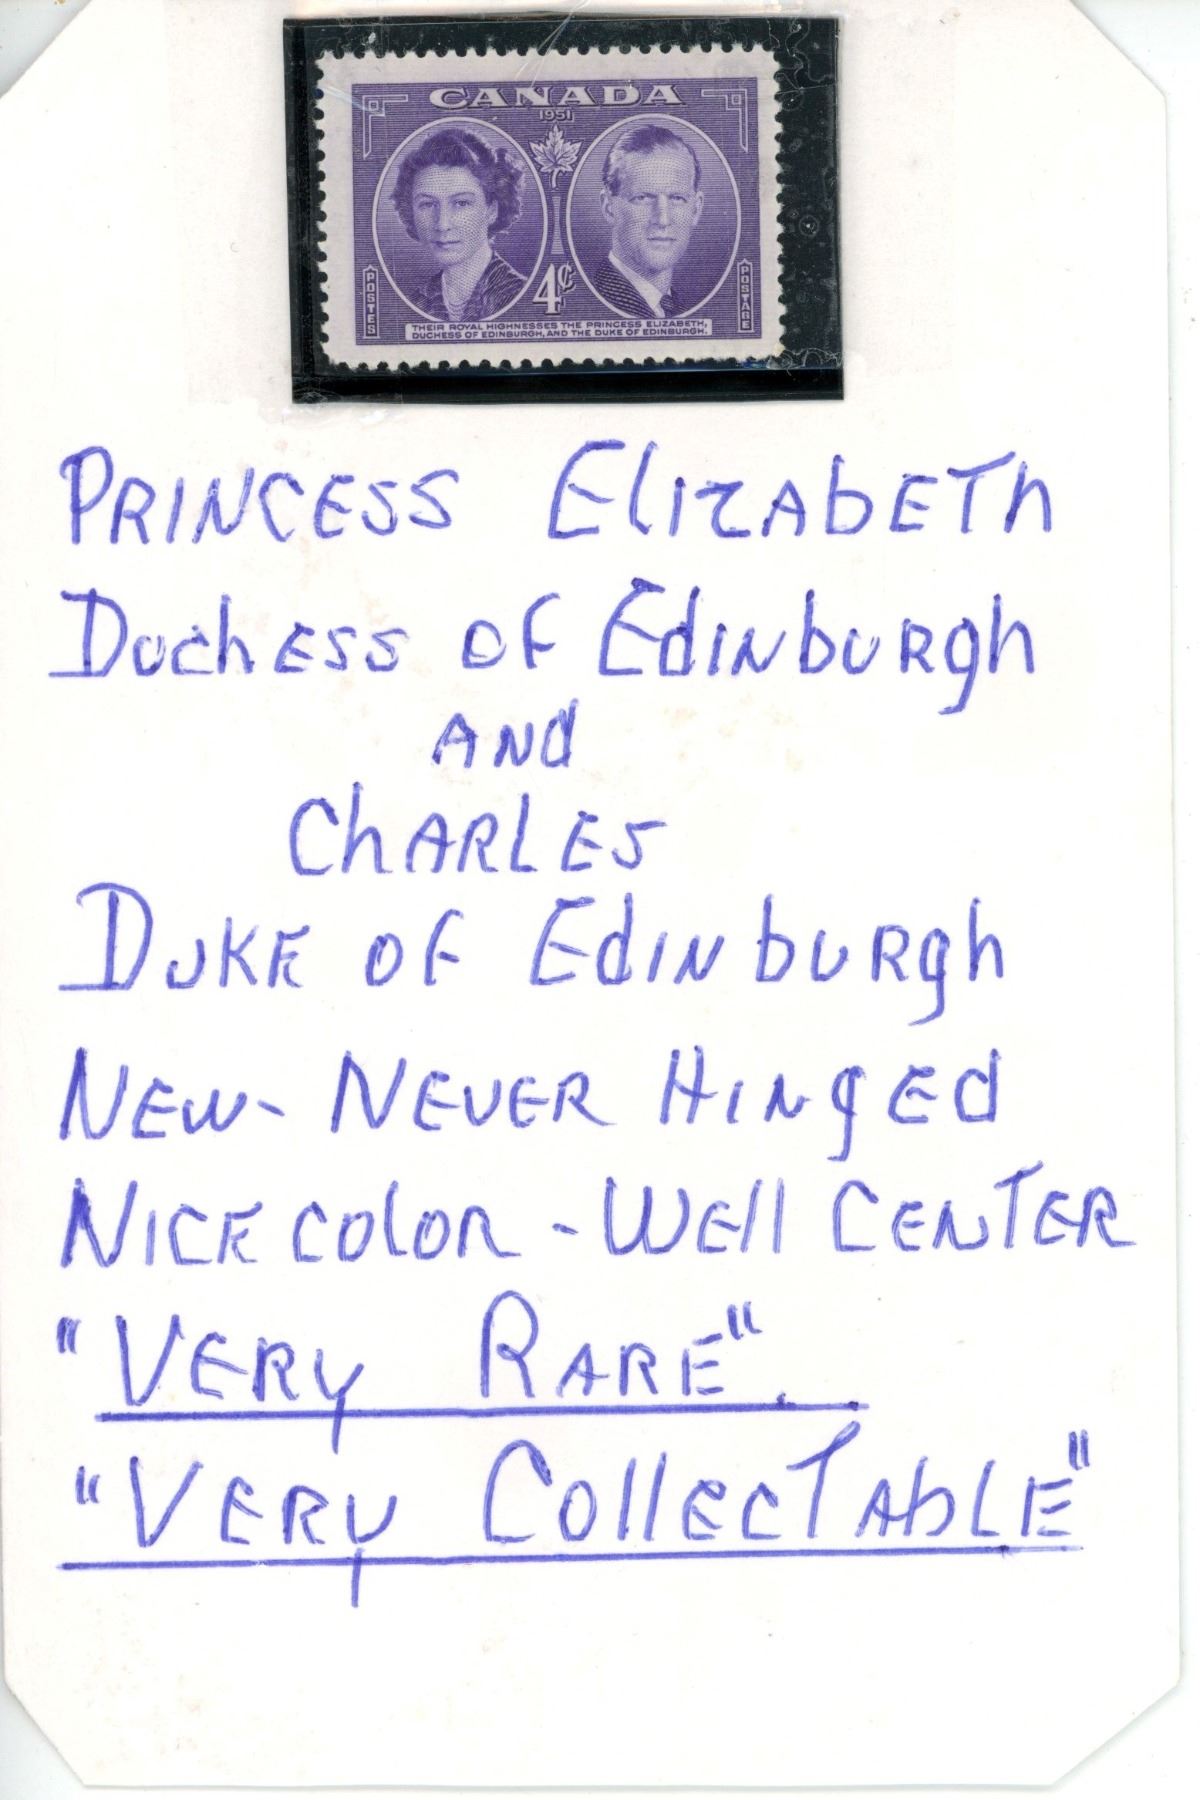 CANADA
1951
POSTES
4¢
POSTAGE
THEIR ROYAL HIGHNESSES THE PRINCESS ELIZABETH,
DUCHESS OF EDINBURGH, AND THE DUKE OF EDINBURGH.
PRINCESS ElIzAbETh
DuchESS OF EdINbURgh
ANd
ChARLES
DUKE OF EdINbURgh
NEW- NEVER HINgEd
NICE COloR - WEll CENTER
"VERy RARE".
"VERy CollEcTAbLE"